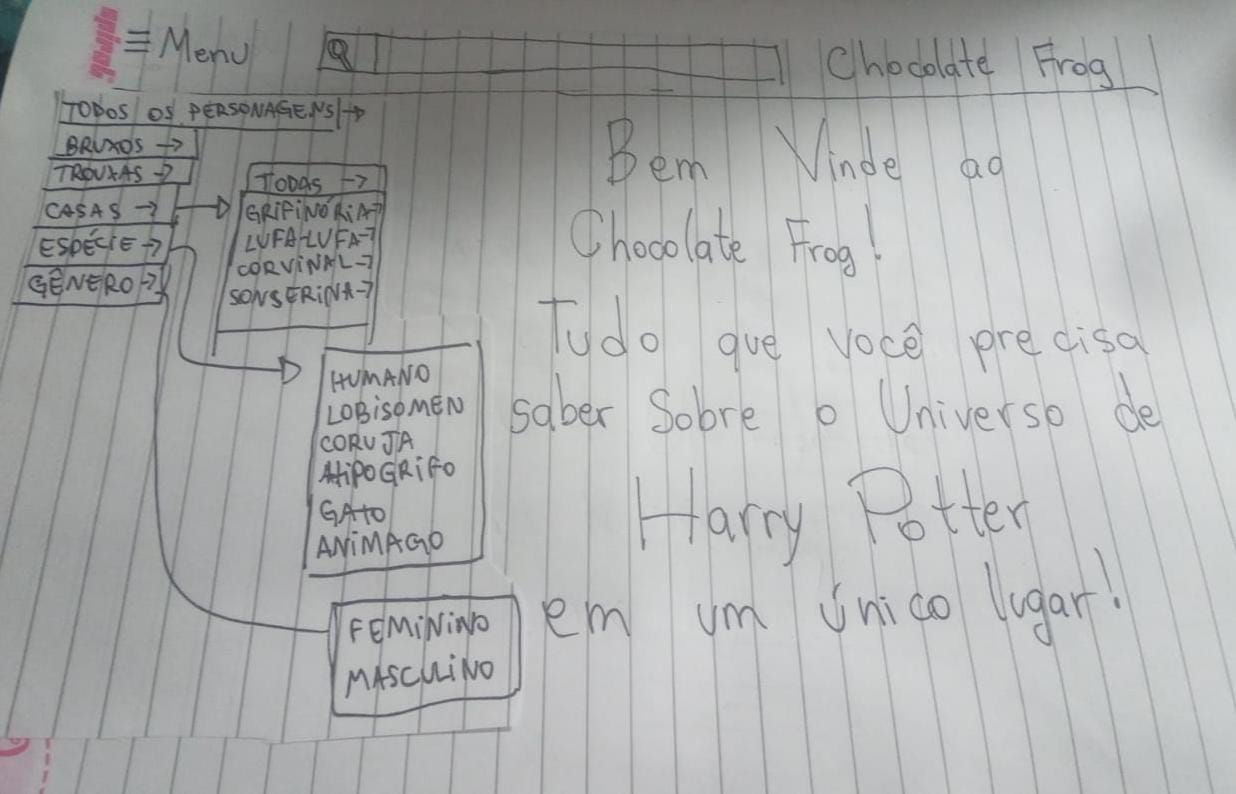 ≡ Menu
Chocolate Frog
TODOS OS PERSONAGENS →
BRUXOS →
TROUXAS →
CASAS →
ESPÉCIE →
GÊNERO →
TODAS →
GRIFINÓRIA →
LUFA-LUFA →
CORVINAL →
SONSERINA →
HUMANO
LOBISOMEN
CORUJA
HIPOGRIFO
GATO
ANIMAGO
FEMININO
MASCULINO
Bem Vinde ao
Chocolate Frog!
Tudo que você precisa
saber Sobre o Universo de
Harry Potter
em um único lugar!